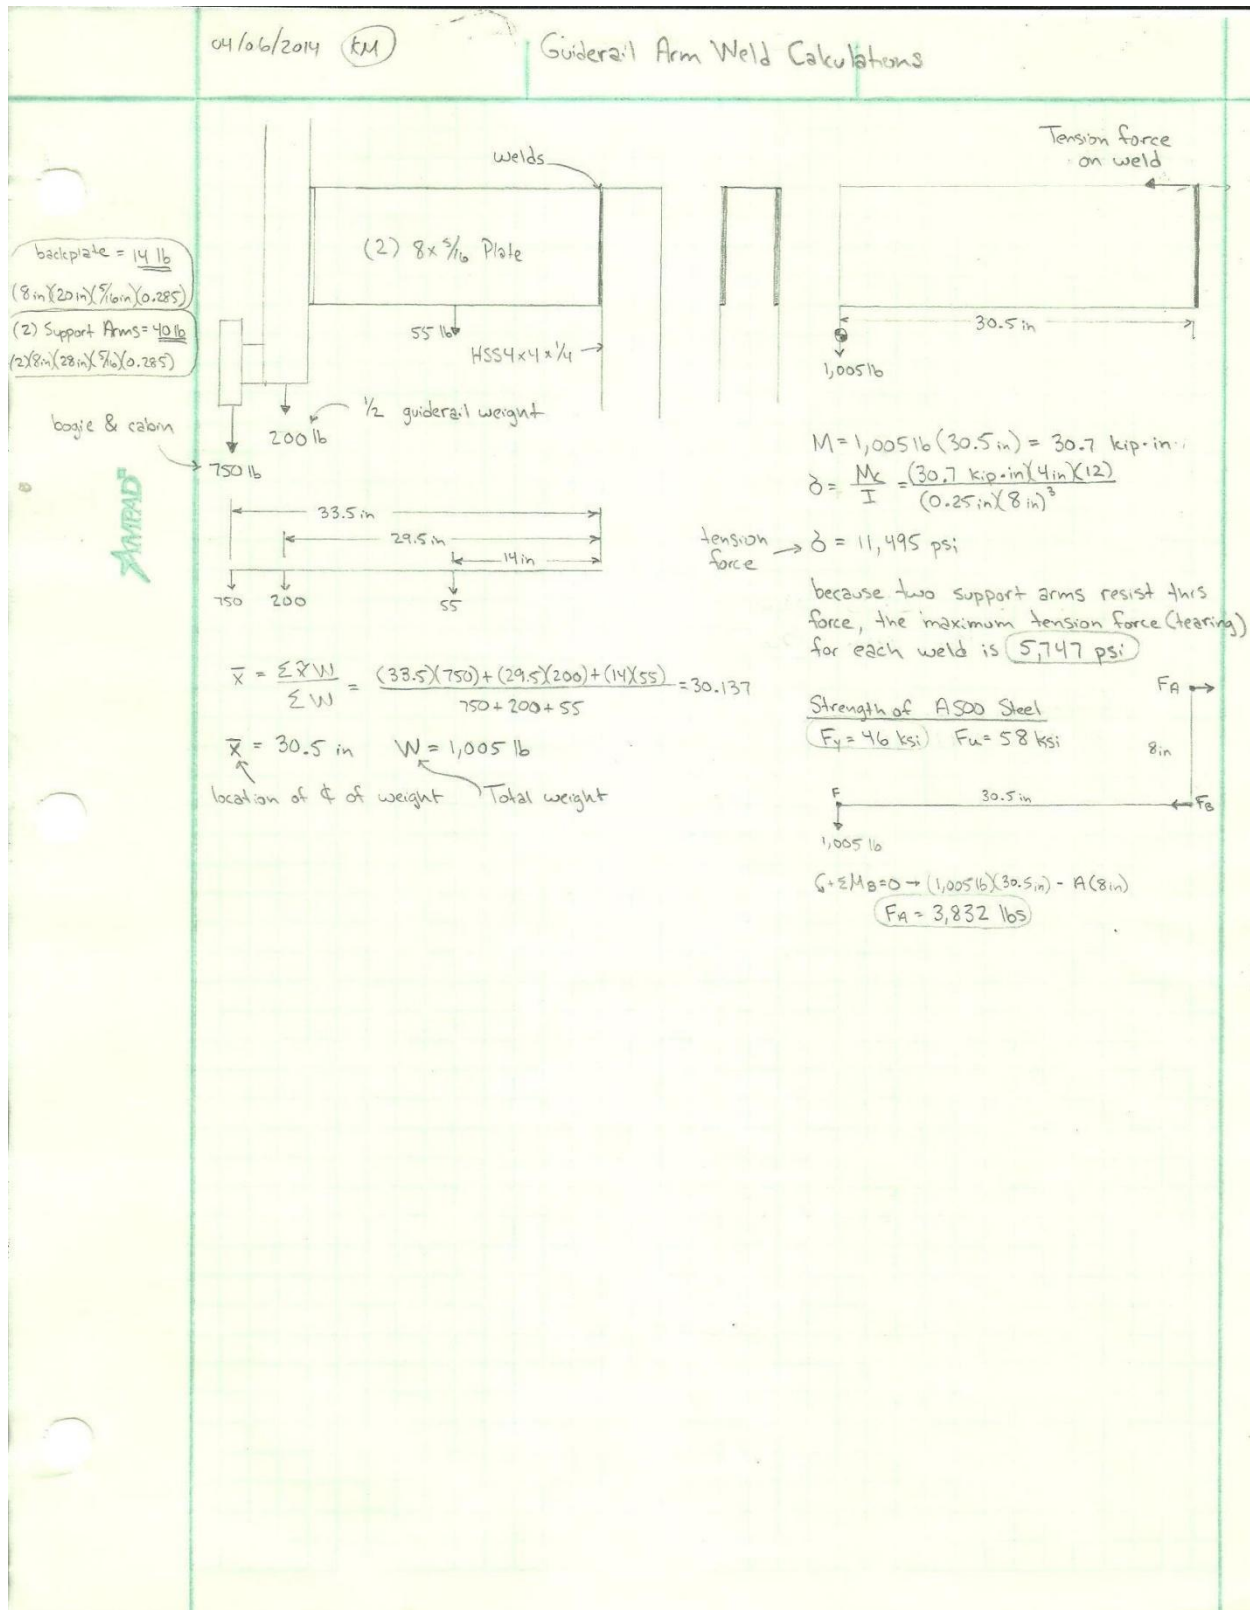 04/06/2014 KM
Guiderail Arm Weld Calculations
welds
Tension force
on weld
backplate = 14 lb
(8in)(20in)(5/16in)(0.285)
(2) Support Arms = 40 lb
(2)(8in)(28in)(5/16)(0.285)
(2) 8 x 5/16 Plate
55 lb
HSS4x4x1/4
30.5 in
1,005 lb
bogie & cabin
200 lb
1/2 guiderail weight
750 lb
AMPAD
33.5 in
29.5 in
14 in
750 200 55
x̄ = Σx̃W / ΣW = (33.5)(750) + (29.5)(200) + (14)(55) / 750 + 200 + 55 = 30.137
x̄ = 30.5 in W = 1,005 lb
location of ℄ of weight Total weight
M = 1,005 lb (30.5 in) = 30.7 kip·in
δ = Mc / I = (30.7 kip·in)(4in)(12) / (0.25in)(8in)³
tension
force
δ = 11,495 psi
because two support arms resist this
force, the maximum tension force (tearing)
for each weld is 5,747 psi
Strength of A500 Steel
Fy = 46 ksi Fu = 58 ksi
FA
8in
F
30.5 in
FB
1,005 lb
↺+ΣMB=0 → (1,005 lb)(30.5in) - A(8in)
FA = 3,832 lbs